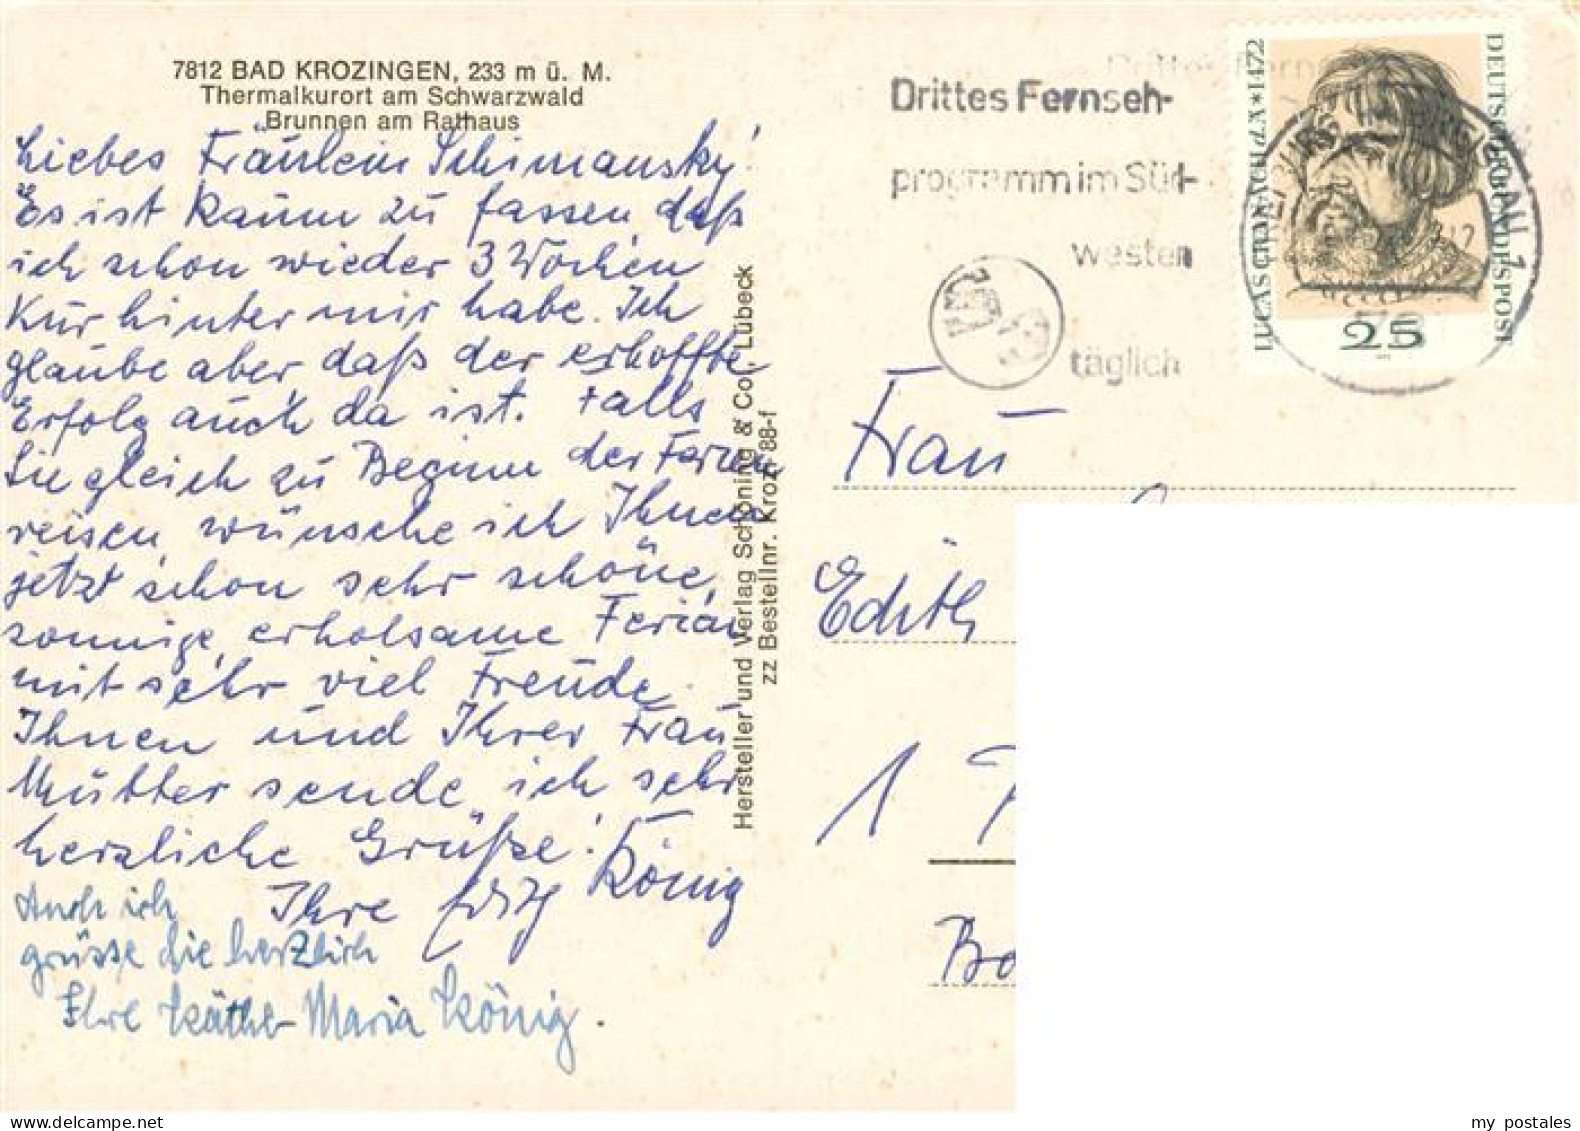 7812 BAD KROZINGEN, 233 m ü. M.
Thermalkurort am Schwarzwald
Brunnen am Rathaus
Liebes Fräulein Schimansky!
Es ist kaum zu fassen, daß
ich schon wieder 3 Wochen
Kur hinter mir habe. Ich
glaube aber, daß der erhoffte
Erfolg auch da ist. Falls
Sie gleich zu Beginn der Ferien
reisen, wünsche ich Ihnen
jetzt schon sehr schöne,
sonnige, erholsame Ferien
mit sehr viel Freude.
Ihnen und Ihrer Frau
Mutter sende ich sehr
herzliche Grüße!
Ihre König
Auch ich
grüsse Sie herzlich
Ihre Käthe Maria König.
Hersteller und Verlag Schöning & Co., Lübeck
zz Bestellnr. Kroz. 88-f
Drittes Fernseh-
programm im Süd-
westen
täglich
LUCAS CRANACH d.Ä * 1472
DEUTSCHE BUNDESPOST
25
Frau
Edith
1